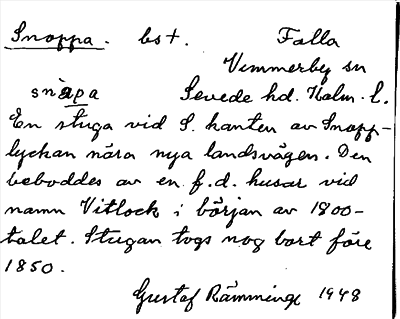 Snoppa. bst. Falla
Vimmerby sn
snåpa Sevede hd. Kalm. l.
En stuga vid S. kanten av Snopp-
lyckan nära nya landsvägen. Den
beboddes av en f.d. husar vid
namn Vitlock i början av 1800-
talet. Stugan togs nog bort före
1850.
Gustaf Rämminge 1948